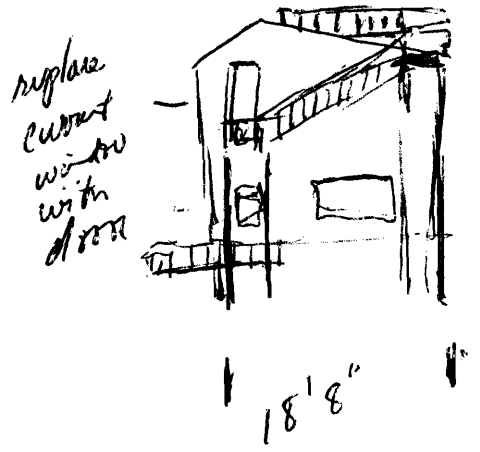 replace
current
window
with
door
18'8"